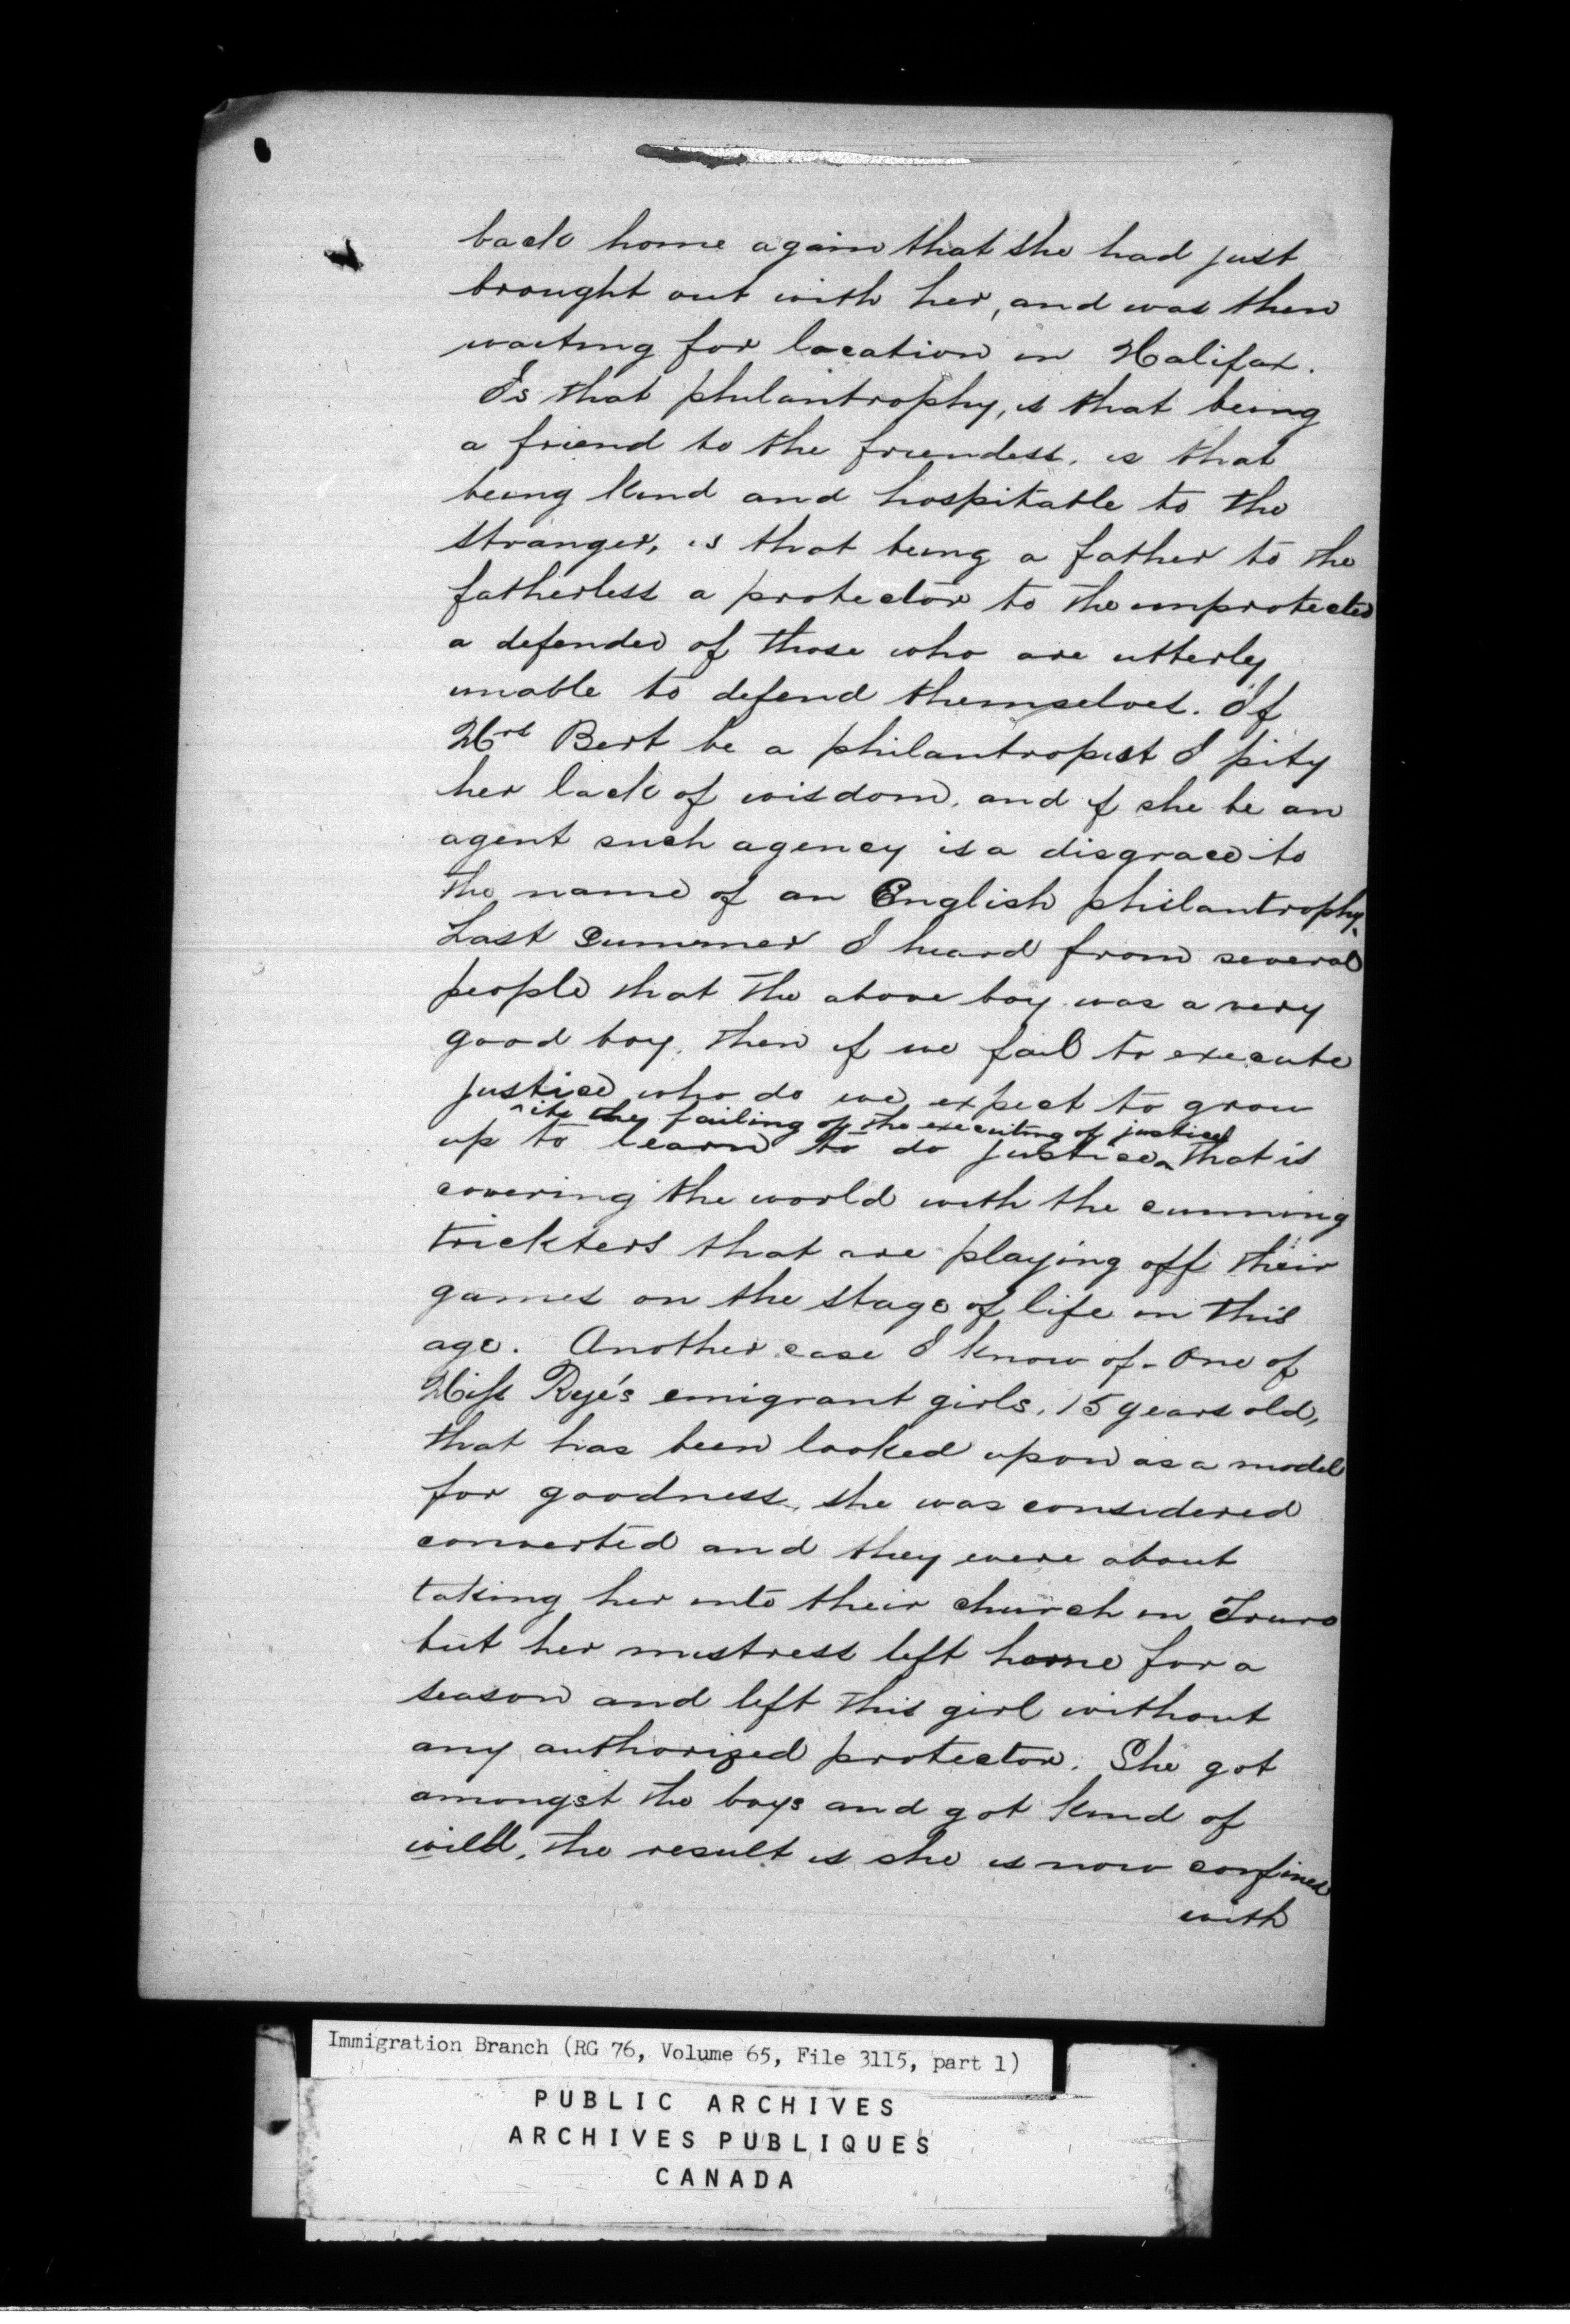 back home again that she had just
brought out with her, and was then
waiting for location in Halifax.
Is that philantrophy, is that being
a friend to the friendess, is that
being kind and hospitable to the
stranger, is that being a father to the
fatherless a protector to the unprotected
a defender of those who are utterly
unable to defend themselves. If
Mrs Bert be a philantropist I pity
her lack of wisdom, and if she be an
agent such agency is a disgrace to
the name of an English philantrophy.
Last Summer I heard from several
people that the above boy was a very
good boy, then if we fail to execute
justice who do we expect to grow
^ its the failing of the executing of justice
up to learn to do justice ^ that is
covering the world with the cunning
trickters that are playing off their
games on the stage of life in this
age. Another case I know of - One of
Miss Rye's emigrant girls, 15 years old,
that has been looked upon as a model
for goodness, she was considered
converted and they were about
taking her into their church in Truro
but her mistress left home for a
season and left this girl without
any authorized protector. She got
amongst the boys and got kind of
wild, the result is she is now confined
with
Immigration Branch (RG 76, Volume 65, File 3115, part 1)
PUBLIC ARCHIVES
ARCHIVES PUBLIQUES
CANADA